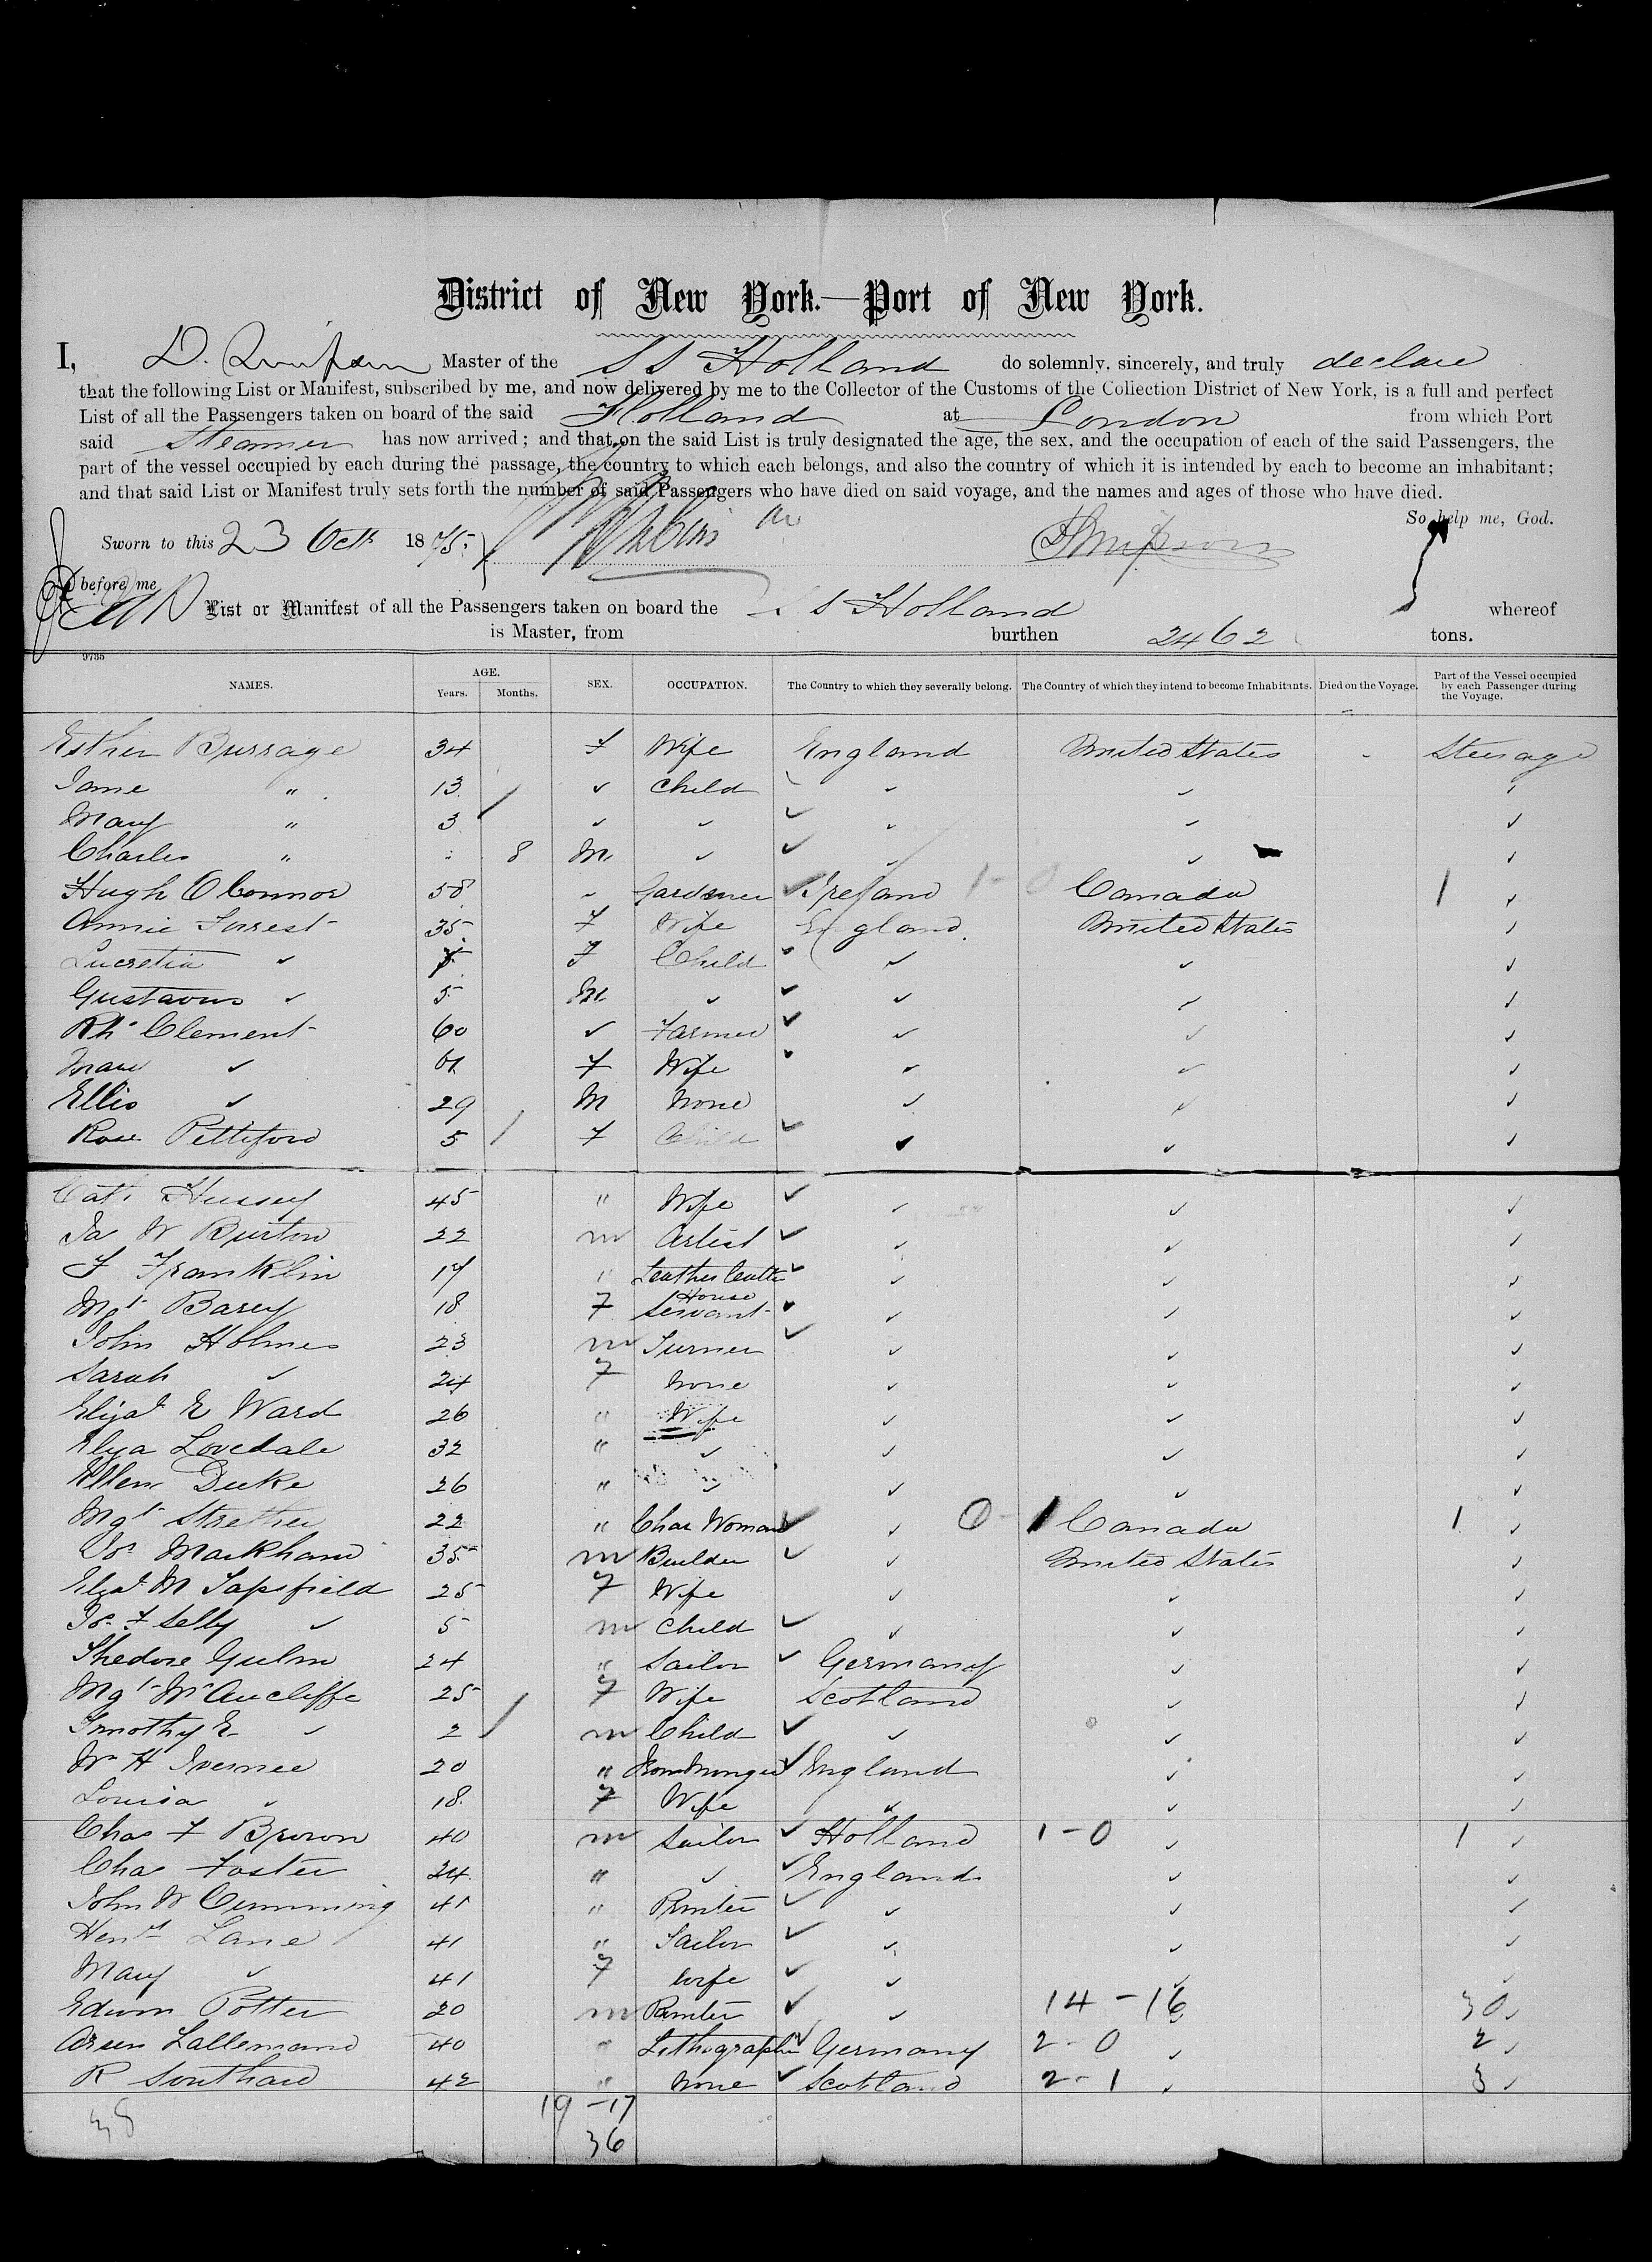 District of New York.—Port of New York.
I, D. Simpson Master of the S S Holland do solemnly, sincerely, and truly declare
that the following List or Manifest, subscribed by me, and now delivered by me to the Collector of the Customs of the Collection District of New York, is a full and perfect
List of all the Passengers taken on board of the said Holland at London from which Port
said Steamer has now arrived; and that on the said List is truly designated the age, the sex, and the occupation of each of the said Passengers, the
part of the vessel occupied by each during the passage, the country to which each belongs, and also the country of which it is intended by each to become an inhabitant;
and that said List or Manifest truly sets forth the number of said Passengers who have died on said voyage, and the names and ages of those who have died.
So help me, God.
Sworn to this 23 Oct 1875 Simpson
before me
List or Manifest of all the Passengers taken on board the S S Holland whereof
is Master, from burthen 2462 tons.
9735
NAMES. AGE. Years. Months. SEX. OCCUPATION. The Country to which they severally belong. The Country of which they intend to become Inhabitants. Died on the Voyage. Part of the Vessel occupied by each Passenger during the Voyage.
Esther Burrage 34 F Wife England United States - Steerage
Jame " 13 ✓ Child ✓ ✓ ✓
Mary " 3 ✓ ✓ ✓ ✓ ✓
Charles " 8 M ✓ ✓ ✓ ✓
Hugh OConnor 58 ✓ Gardener Ireland 1-0 Canada 1 ✓
Annie Forrest 35 F Wife England United States ✓
Lucretia ✓ F Child ✓ ✓ ✓
Gustavus ✓ 5 M ✓ ✓ ✓ ✓
Clement 60 ✓ Farmer ✓ ✓ ✓
✓ 61 F Wife ✓ ✓ ✓
Ellis ✓ 29 M None ✓ ✓ ✓
Rose Pettiford 5 F Child ✓ ✓ ✓
Cath Hussey 45 " Wife ✓ ✓ ✓
Ja W Burton 22 m Artist ✓ ✓ ✓
F Franklin 17 " Leather Cutter ✓ ✓ ✓
Mgt Barey 18 F House Servant ✓ ✓ ✓
John Holmes 23 m Turner ✓ ✓ ✓
Sarah ✓ 24 F None ✓ ✓ ✓
Elizat E Ward 26 " Wife ✓ ✓ ✓
Eliza Lovedale 32 " ✓ ✓ ✓ ✓
Ellen Duke 26 " ✓ ✓ ✓ ✓
Mgt Strether 22 " Char Woman ✓ 0-1 Canada 1 ✓
Markham 35 m Builder ✓ United States ✓
Elizat M Tapsfield 25 F Wife ✓ ✓
Jos F Selby ✓ 5 m Child ✓ ✓ ✓
Thedore Gulm 24 " Sailor Germany ✓ ✓
Mgt McAucliffe 25 F Wife Scotland ✓ ✓
Timothy E ✓ 2 m Child ✓ ✓ ✓
Wm H Ivernee 20 " Iron Monger England ✓ ✓
Louisa ✓ 18 F Wife ✓ ✓ ✓
Chas F Brown 40 m Sailor Holland 1-0 ✓ 1 ✓
Chas Foster 24 " ✓ England ✓ ✓
John W Cumming 41 " Printer ✓ ✓ ✓
Lane 41 " Tailor ✓ ✓ ✓
Mary ✓ 41 F Wife ✓ ✓ ✓
Edwin Potter 20 m Painter ✓ 14-16 ✓ 30 ✓
Arsen Lallemand 40 " Lithographer Germany 2-0 ✓ 2 ✓
R Southard 42 " None Scotland 2-1 ✓ 3 ✓
38 19-17
36